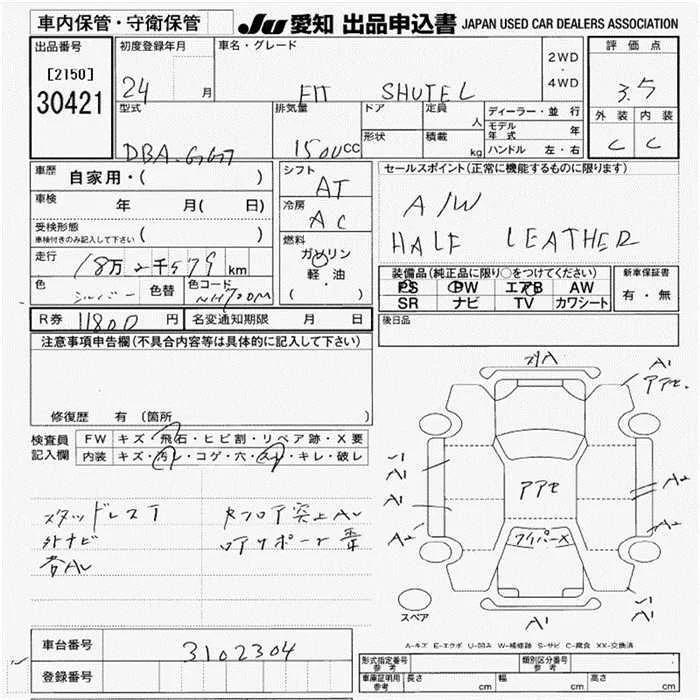 車内保管・守衛保管 JU 愛知 出品申込書 JAPAN USED CAR DEALERS ASSOCIATION
出品番号 初度登録年月 車名・グレード 2WD ・ 4WD 評価点
[2150] 24 月 FIT SHUTEL 3.5
30421
型式 排気量 ドア 定員 人 ディーラー・並行 外装 内装
DBA-GG7 1500cc 形状 積載 kg モデル年式 年 C C
ハンドル 左・右
車歴 自家用・( ) シフト AT セールスポイント(正常に機能するものに限ります)
車検 年 月( 日) 冷房 AC A/W
受検形態 車検付きのみ記入して下さい ( ) 燃料 ガソリン HALF LEATHER
走行 18万2千579km 軽・油
色 シルバー 色替 色コード NH700M ・( ) 装備品(純正品に限り○をつけてください) 新車保証書
PS PW エアB AW 有・無
SR ナビ TV カワシート
R券 11800円 名変通知期限 月 日 後日品
注意事項申告欄(不具合内容等は具体的に記入して下さい)
修復歴 有(箇所
検査員記入欄 FW キズ・飛石・ヒビ割・リペア跡・X要
内装 キズ・汚レ・コゲ・穴・スレ・キレ・破レ
A1
アアセ
A1
A1
A2
アアセ
A2
A2
ワイパーX
スタッドレスT
外ナビ
A1
A1
スペア
A-キズ E-エクボ U-凹み W-補修跡 S-サビ C-腐食 XX-交換済
車台番号 3102304
登録番号
型式指定番号 参考 類別区分番号 参考
車庫証明用 参考 長さ cm 幅 cm 高さ cm